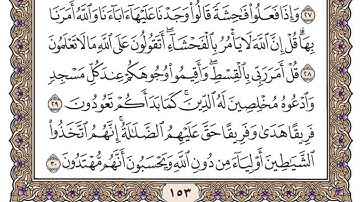 ٢٧ وَإِذَا فَعَلُوا۟ فَٰحِشَةً قَالُوا۟ وَجَدْنَا عَلَيْهَآ ءَابَآءَنَا وَٱللَّهُ أَمَرَنَا
بِهَا ۗ قُلْ إِنَّ ٱللَّهَ لَا يَأْمُرُ بِٱلْفَحْشَآءِ ۖ أَتَقُولُونَ عَلَى ٱللَّهِ مَا لَا تَعْلَمُونَ
٢٨ قُلْ أَمَرَ رَبِّى بِٱلْقِسْطِ ۖ وَأَقِيمُوا۟ وُجُوهَكُمْ عِندَ كُلِّ مَسْجِدٍ
وَٱدْعُوهُ مُخْلِصِينَ لَهُ ٱلدِّينَ ۚ كَمَا بَدَأَكُمْ تَعُودُونَ ٢٩
فَرِيقًا هَدَىٰ وَفَرِيقًا حَقَّ عَلَيْهِمُ ٱلضَّلَٰلَةُ ۗ إِنَّهُمُ ٱتَّخَذُوا۟
ٱلشَّيَٰطِينَ أَوْلِيَآءَ مِن دُونِ ٱللَّهِ وَيَحْسَبُونَ أَنَّهُم مُّهْتَدُونَ ٣٠
١٥٣